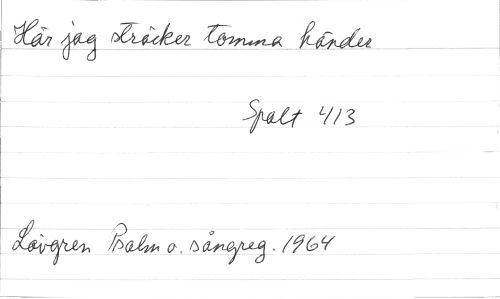 Här jag sträcker tomma händer
Spalt 413
Lövgren Psalm o. sångreg. 1964